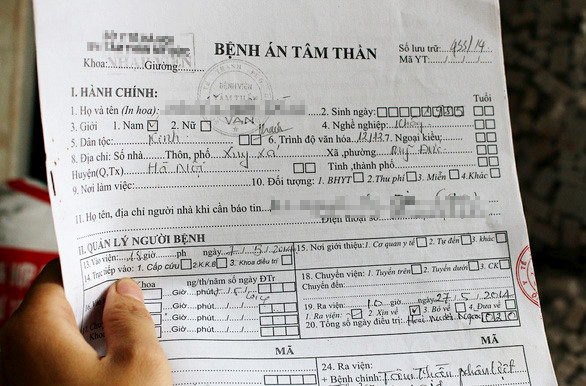 BỆNH ÁN TÂM THẦN
Số lưu trữ: 955/14
Mã YT:
Khoa: Giường:
BỆNH VIỆN
I. HÀNH CHÍNH:
1. Họ và tên (In hoa): 2. Sinh ngày: Tuổi
VẠN
3. Giới 1. Nam 2. Nữ 4. Nghề nghiệp:
5. Dân tộc: Kinh 6. Trình độ văn hóa: 12/12 7. Ngoại kiều:
8. Địa chỉ: Số nhà Thôn, phố Xuy xá Xã, phường: Mỹ Đức
Huyện(Q.Tx) Hà Nội Tỉnh, thành phố
9. Nơi làm việc: 10. Đối tượng: 1. BHYT 2. Thu phí 3. Miễn 4. Khác
11. Họ tên, địa chỉ người nhà khi cần báo tin
Điện thoại số
II. QUẢN LÝ NGƯỜI BỆNH
13. Vào viện: giờ ph ngày
14. Trực tiếp vào: 1. Cấp cứu 2. K.K.B 3. Khoa điều trị
Khoa ng/th/năm số ngày ĐTr
Giờ phút
Giờ phút
Giờ phút
15. Nơi giới thiệu: 1. Cơ quan y tế 2. Tự đến 3. khác
18. Chuyển viện: 1. Tuyến trên 2. Tuyến dưới 3. CK
Chuyển đến:
19. Ra viện: 10 giờ ngày 27/5/2014
1. Ra viện: 2. Xin về 3. Bỏ về 4. Đưa về
20. Tổng số ngày điều trị: Hai mươi ngày 020
MÃ
MÃ
24. Ra viện:
+ Bệnh chính: Tâm thần phân liệt